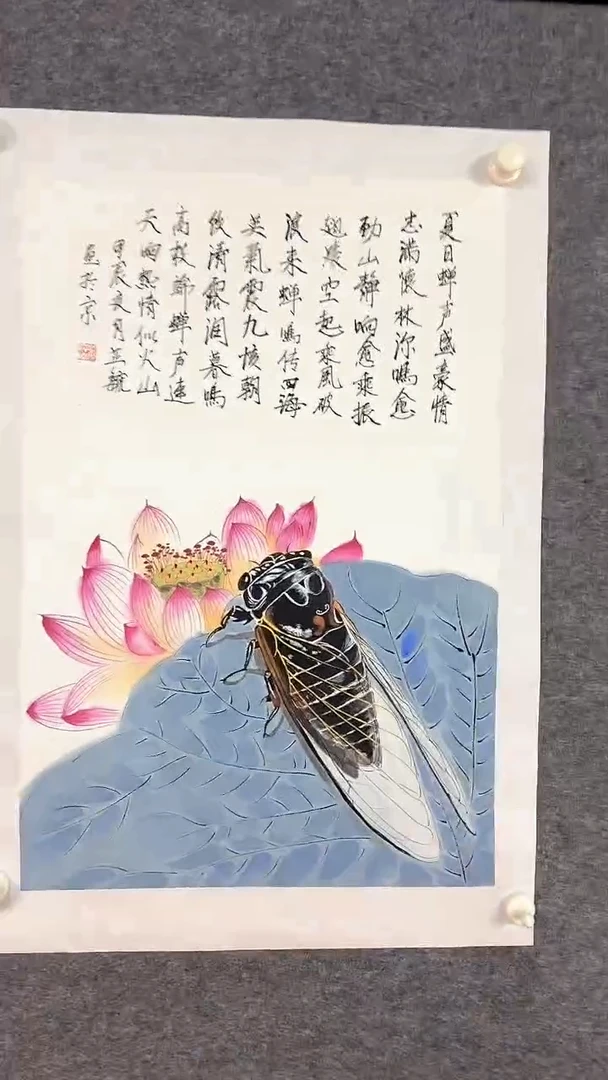 夏日蝉声盛豪情
志满怀林深鸣愈
劲山静响愈乘振
翅凌空起乘风破
浪来蝉鸣传四海
英氣震九垓朝
饮清露润暮鸣
高枝蝉声远
天曲热情似火山
甲辰月毓
画於京